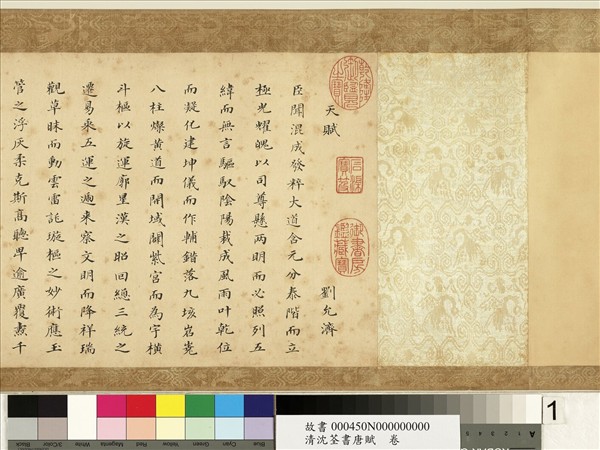 天賦 劉允濟
臣聞混成發粹大道含元分泰階而立
極光耀魄以司尊懸兩明而必照列五
緯而無言驅馭陰陽裁成風雨叶乾位
而凝化建坤儀而作輔錯落九垓岧嶤
八柱燦黃道而開域闢紫宮而為宇橫
斗樞以旋運廓星漢之昭回總三統之
遷易乘五運之遞來察文明而降祥瑞
觀草昧而動雲雷託璇樞之妙術應玉
管之浮灰柔克斯高聰卑逾廣覆燾千
乾隆御覽之寶
石渠寶笈
御書房鑑藏寶
Black 3/Color White Magenta Red Yellow Green Cyan Blue
故書 000450N000000000
清沈荃書唐賦 卷
A
1